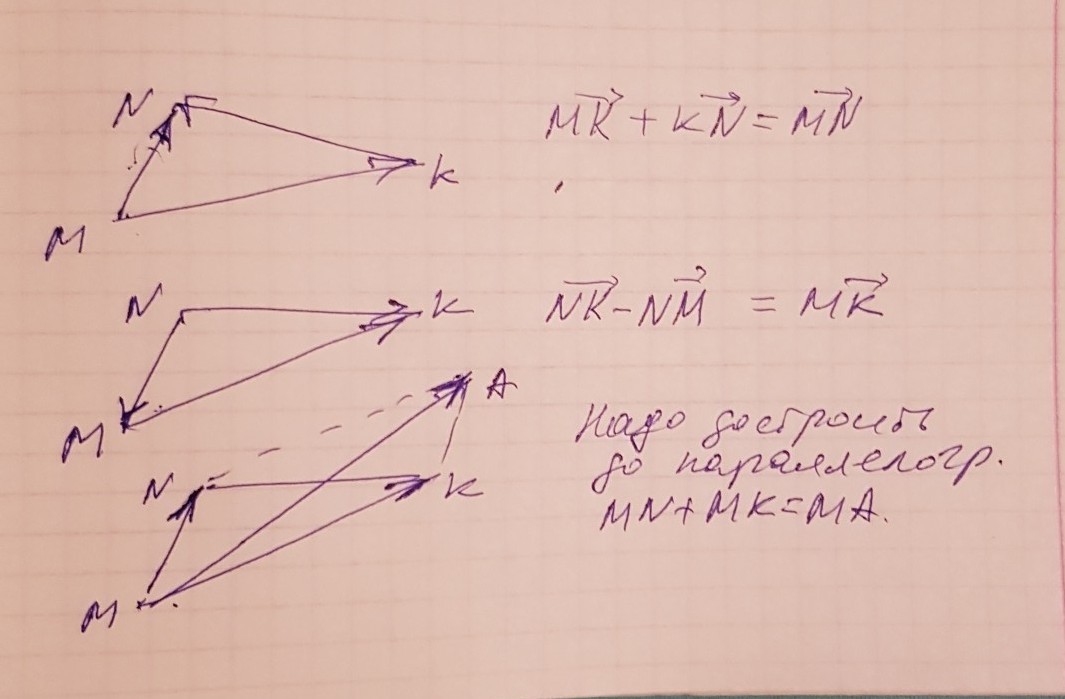 N
M
K
M⃗K + K⃗N = M⃗N
N
K
M
N⃗K - N⃗M = M⃗K
A
N
K
M
Надо достроить
до параллелогр.
MN+MK=MA.